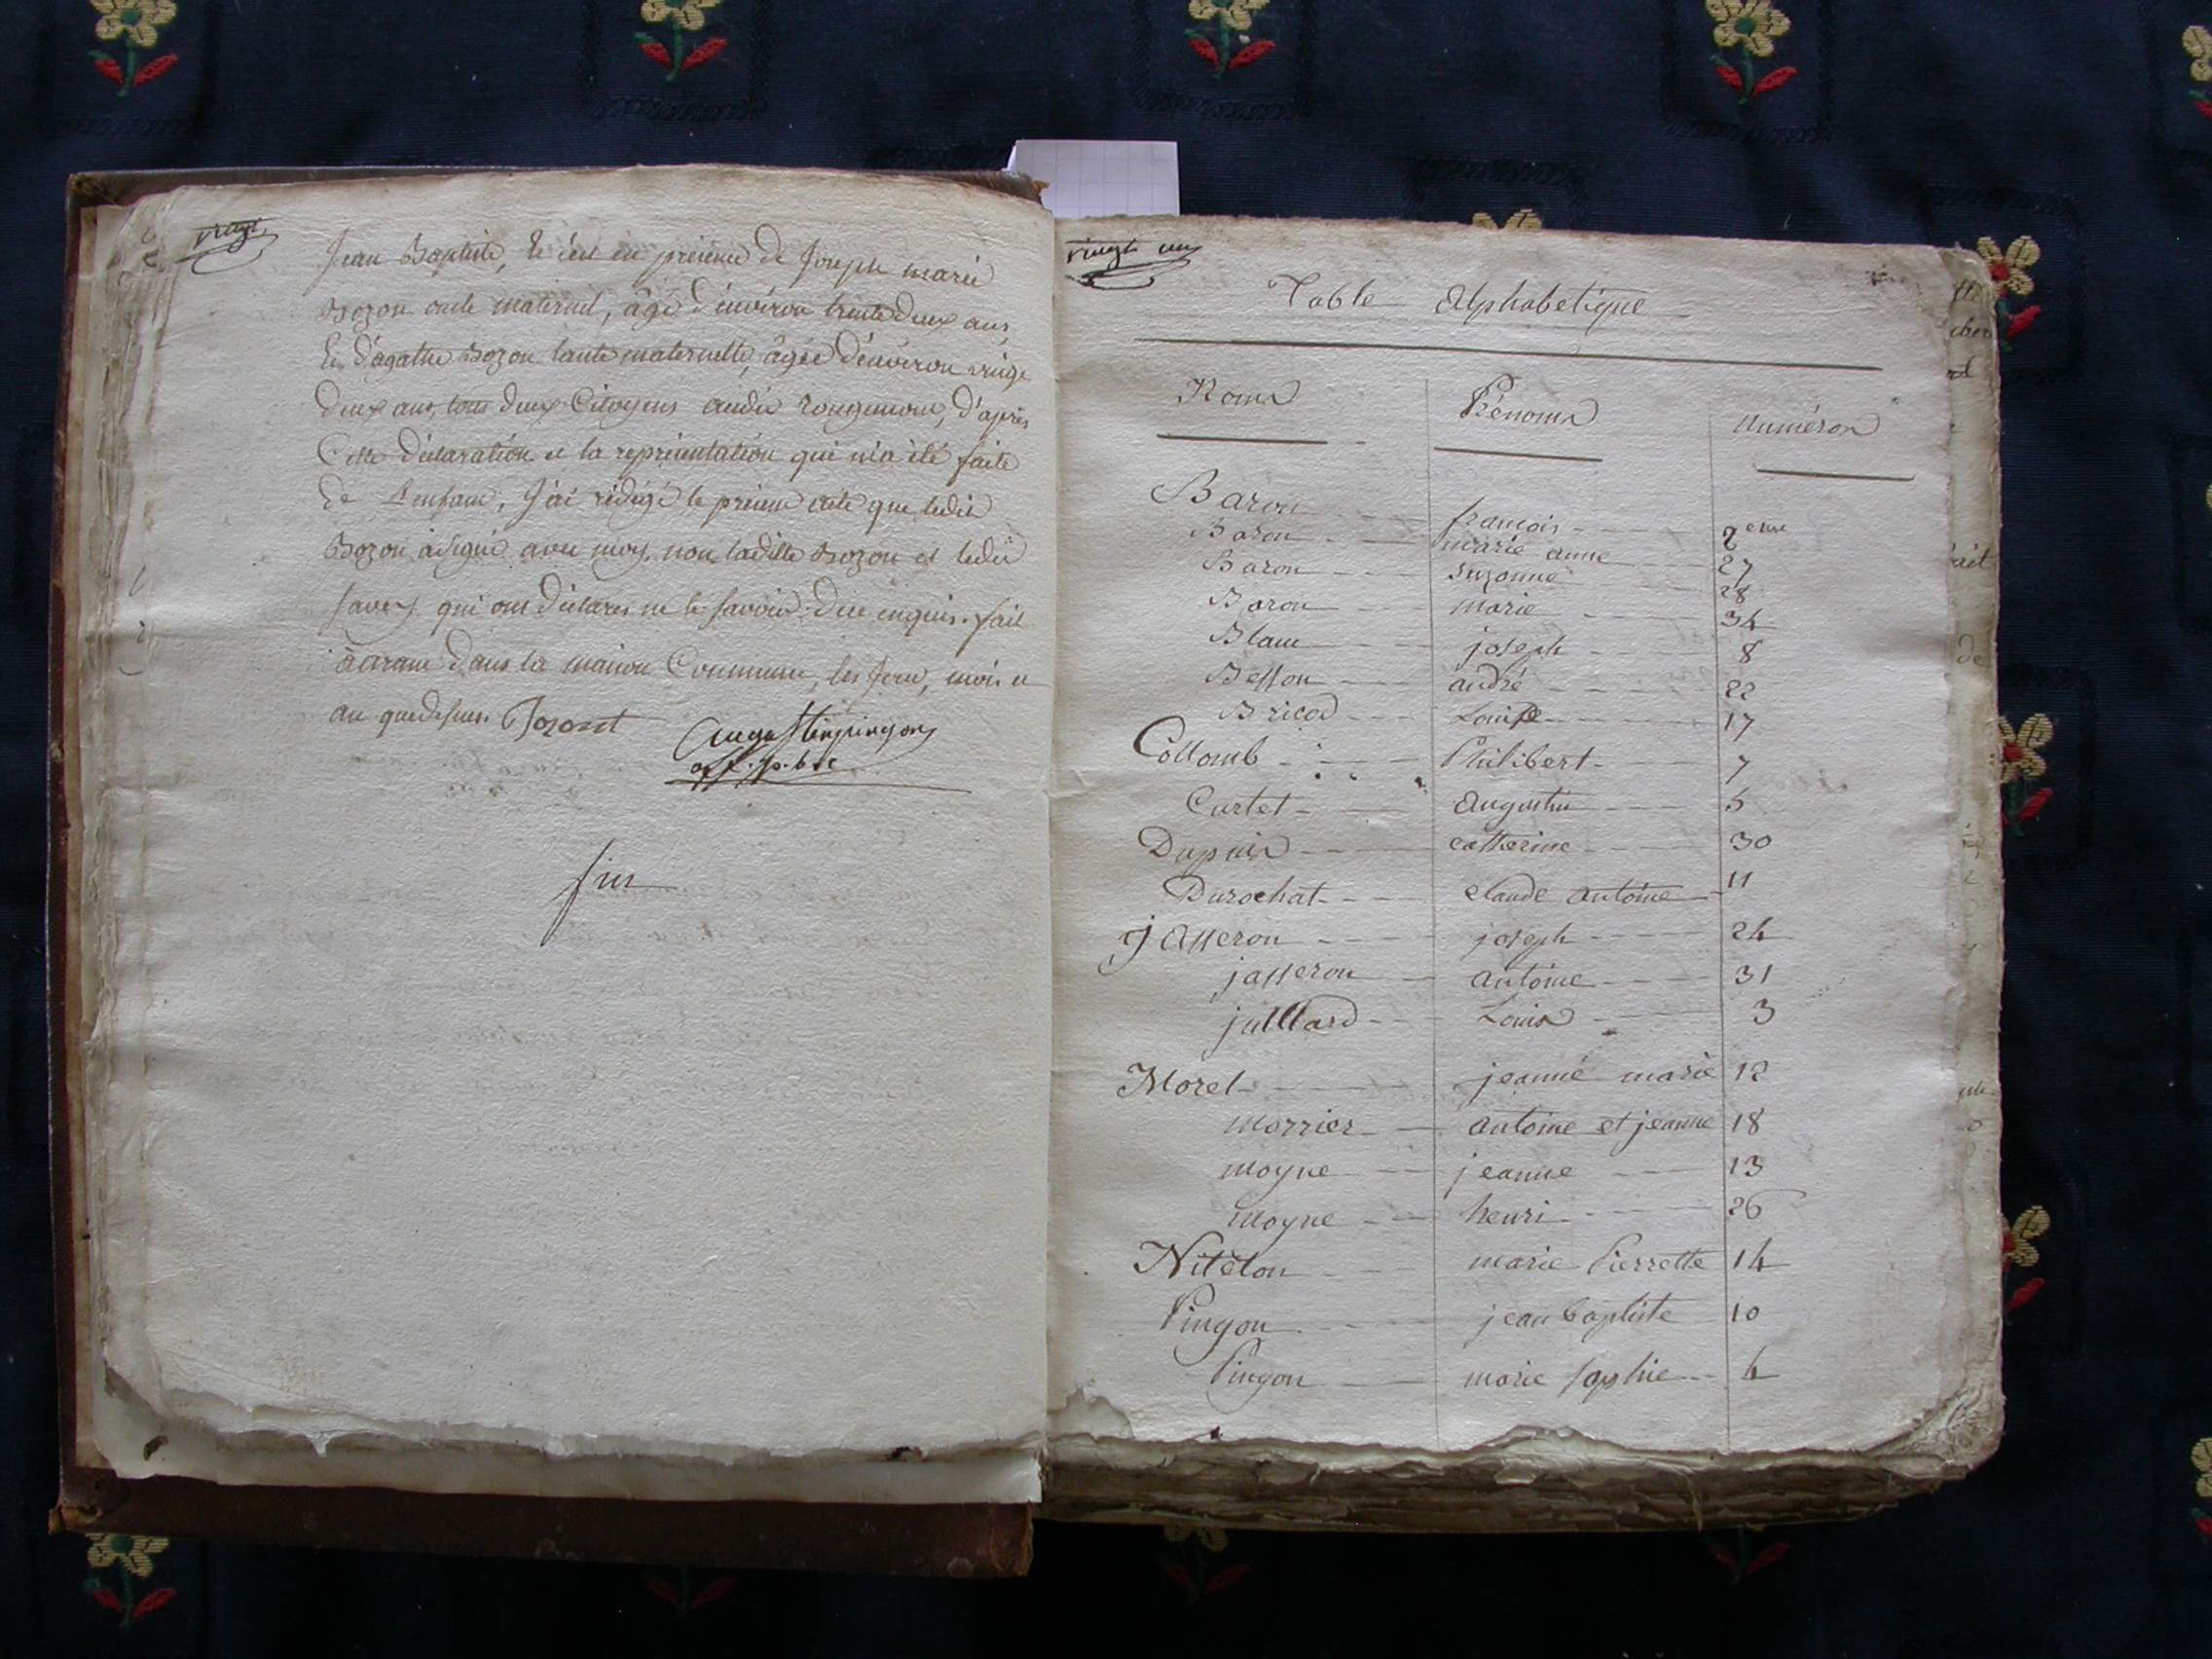 vingt
Jean Baptiste, et c'est en présence de Joseph marie
Bozon oncle maternel, âgé d'environ trente deux ans
Et d'agathe Bozon tante maternelle, âgée d'environ vingt
deux ans, tous deux Citoyens audit rougemont, d'après
Cette déclaration et la représentation qui m'a été faite
de L'enfant, J'ai rédigé le présent acte que ledit
Bozon à signé avec moy, non ladille Bozon et ledit
qui ont déclarés ne le savoir de ce enquis. fait
à aranc dans la maison Commune, les jour, mois et
an que dessus. Bozonet
augustinpingon
off. p.blc
fin
vingt un
Table Alphabetique
Noms Prénoms Numéros
Baron françois 2eme
Baron marie anne 27
Baron Suzanne 28
Baron marie 34
Blanc joseph 8
Besson andré 22
Bricod Louise 17
Collomb Philibert 7
Curtet augustin 5
Dupuis catherine 30
Durochat claude antoine 11
jasseron joseph 24
jasseron antoine 31
juillard Louis 3
Morel jeanne marie 12
morrier antoine et jeanne 18
moyne jeanne 13
moyne henri 26
Niteton marie Pierrette 14
Pingon jean baptiste 10
Pingon marie sophie 6